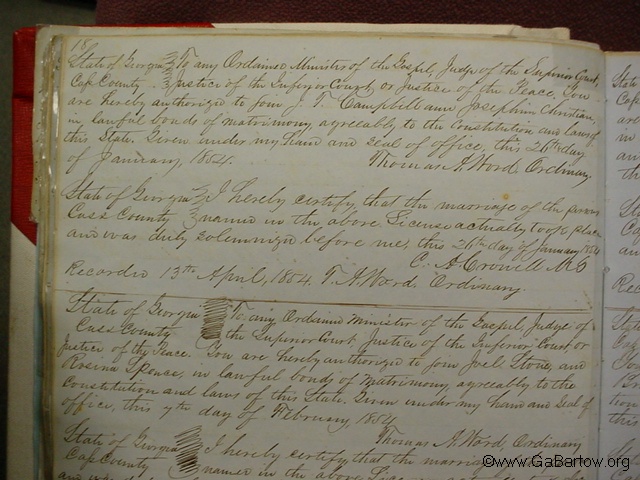 18
State of Georgia To any Ordained Minister of the Gospel, Judge of the Superior Court,
Cass County Justice of the Inferior Court, or Justice of the Peace. You
are hereby authorized to join J. T. Campbell and Josephine Christian,
in lawful bonds of matrimony agreeably to the Constitution and laws of
this State. Given under my hand and seal of office, this 26th day
of January, 1854. Thomas A. Word, Ordinary.
State of Georgia I hereby certify, that the marriage of the persons
Cass County named in the above License actually took place
and was duly solemnized before me, this 26th day of January 1854
C. A. Crowell
Recorded 13th April, 1854. T. A. Word Ordinary.
State of Georgia To any Ordained Minister of the Gospel, Judge of
Cass County the Superior Court Justice of the Inferior Court or
Justice of the Peace. You are hereby authorized to join Joel Stone, and
Rosina Spence, in lawful bonds of matrimony, agreeably to the
Constitution and laws of this State. Given under my hand and Seal of
office, this 7th day of February 1854
Thomas A. Word, Ordinary
State of Georgia I hereby certify, that the marriage
Cass County named in the above
©www.GaBartow.org